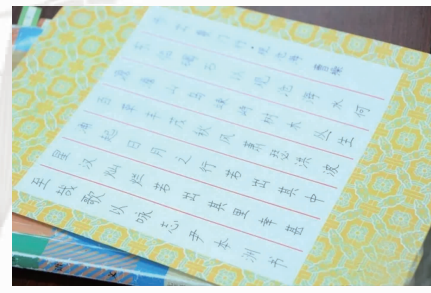 步出夏门行·观沧海 曹操
东临碣石以观沧海水何
澹澹山岛竦峙树木丛生
百草丰茂秋风萧瑟洪波
涌起日月之行若出其中
星汉灿烂若出其里幸甚
至哉歌以咏志